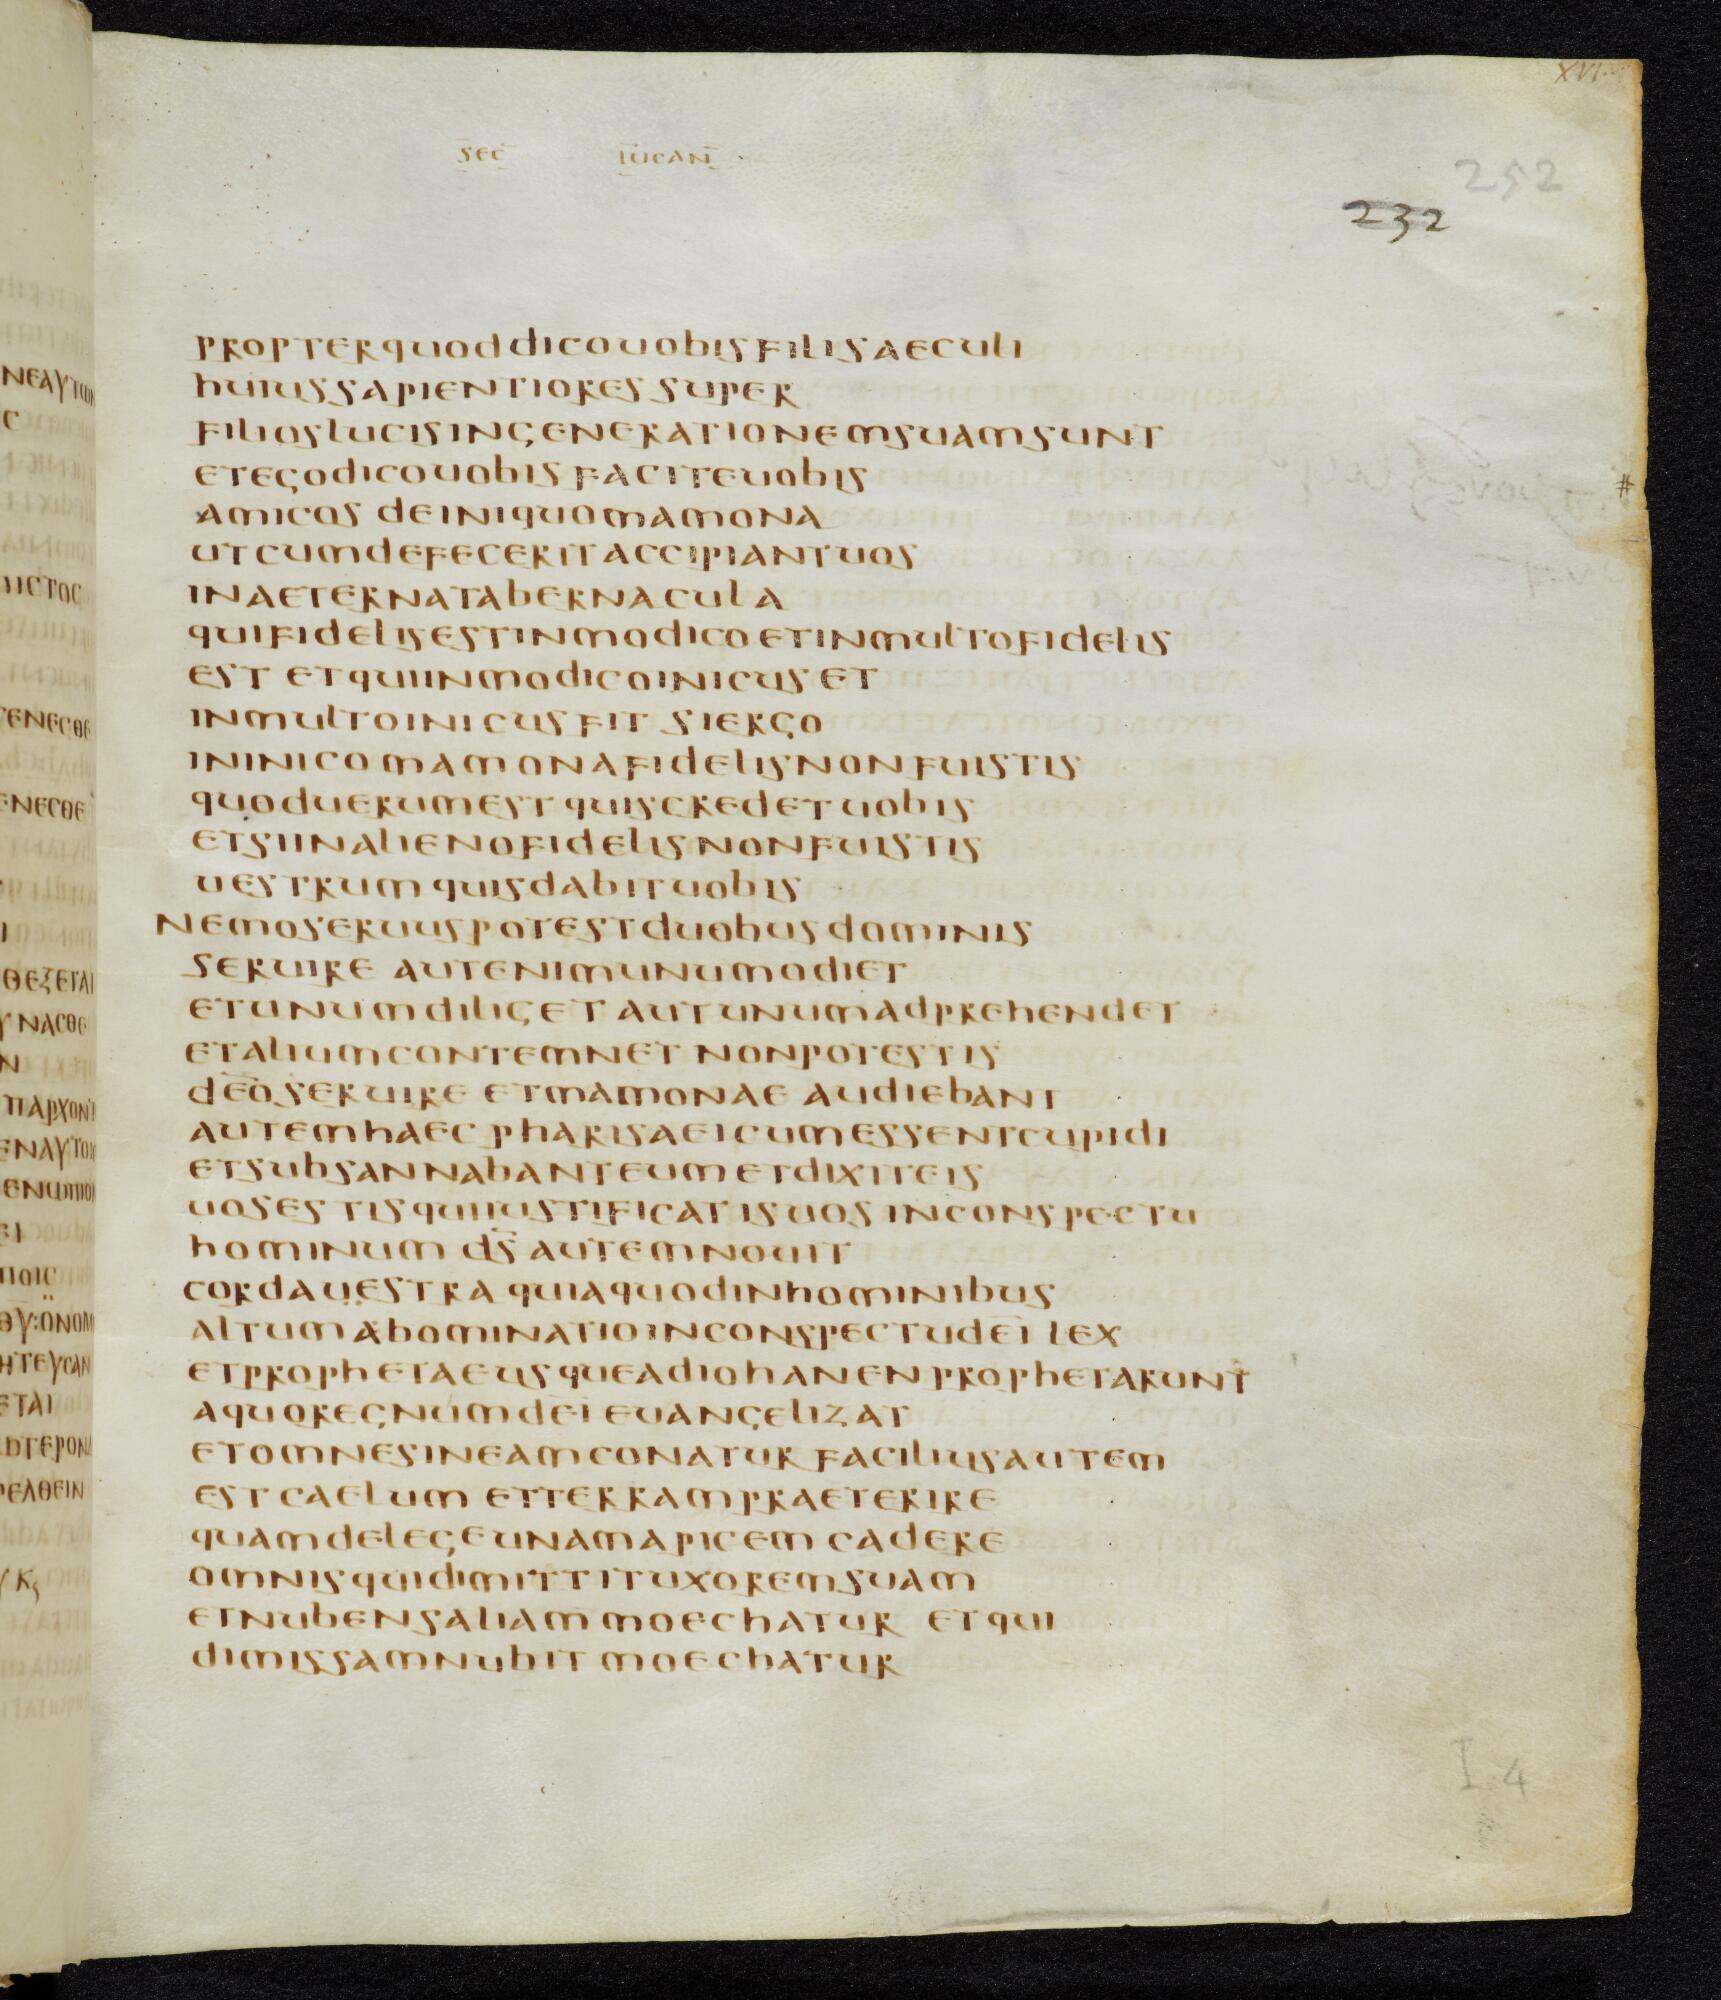 XVI
SEC̅ LUCAN̅
252
232
PROPTERQUODDICOUOBISFILISAECULI
HUIUSSAPIENTIORESSUPER
FILIOSLUCISINGENERATIONEMSUAMSUNT
ETEGODICOUOBISFACITEUOBIS
AMICOS DEINIQUOMAMONA
UTCUMDEFECERITACCIPIANTUOS
INAETERNATABERNACULA
QUIFIDELISESTINMODICOETINMULTOFIDELIS
EST ETQUIINMODICOINICUSET
INMULTOINICUSFIT SIERGO
ININICOMAMONAFIDELISNONFUISTIS
QUODUERUMEST QUISCREDETUOBIS
ETSIINALIENOFIDELISNONFUISTIS
UESTRUMQUISDABITUOBIS
NEMOSERUUSPOTESTDUOBUSDOMINIS
SERUIRE AUTENIMUNUMODIET
ETUNUMDILIGET AUTUNUMADPREHENDET
ETALIUMCONTEMNET NONPOTESTIS
DEOSERUIRE ETMAMONAE AUDIEBANT
AUTEMHAEC PHARISAEICUMESSENTCUPIDI
ETSUBSANNABANTEUMETDIXITEIS
UOSESTISQUIIUSTIFICATISUOSINCONSPECTU
HOMINUM DS̅ AUTEMNOUIT
CORDAUESTRA QUIAQUODINHOMINIBUS
ALTUMABOMINATIOINCONSPECTUDEI LEX
ETPROPHETAEUSQUEADIOHANENPROPHETARUNT
AQUOREGNUMDEI EUANGELIZAT
ETOMNESINEAMCONATUR FACILIUSAUTEM
EST CAELUM ETTERRAMPRAETERIRE
QUAMDELEGEUNAMAPICEM CADERE
OMNISQUIDIMITTITUXOREMSUAM
ETNUBENSALIAM MOECHATUR ETQUI
DIMISSAMNUBIT MOECHATUR
I 4